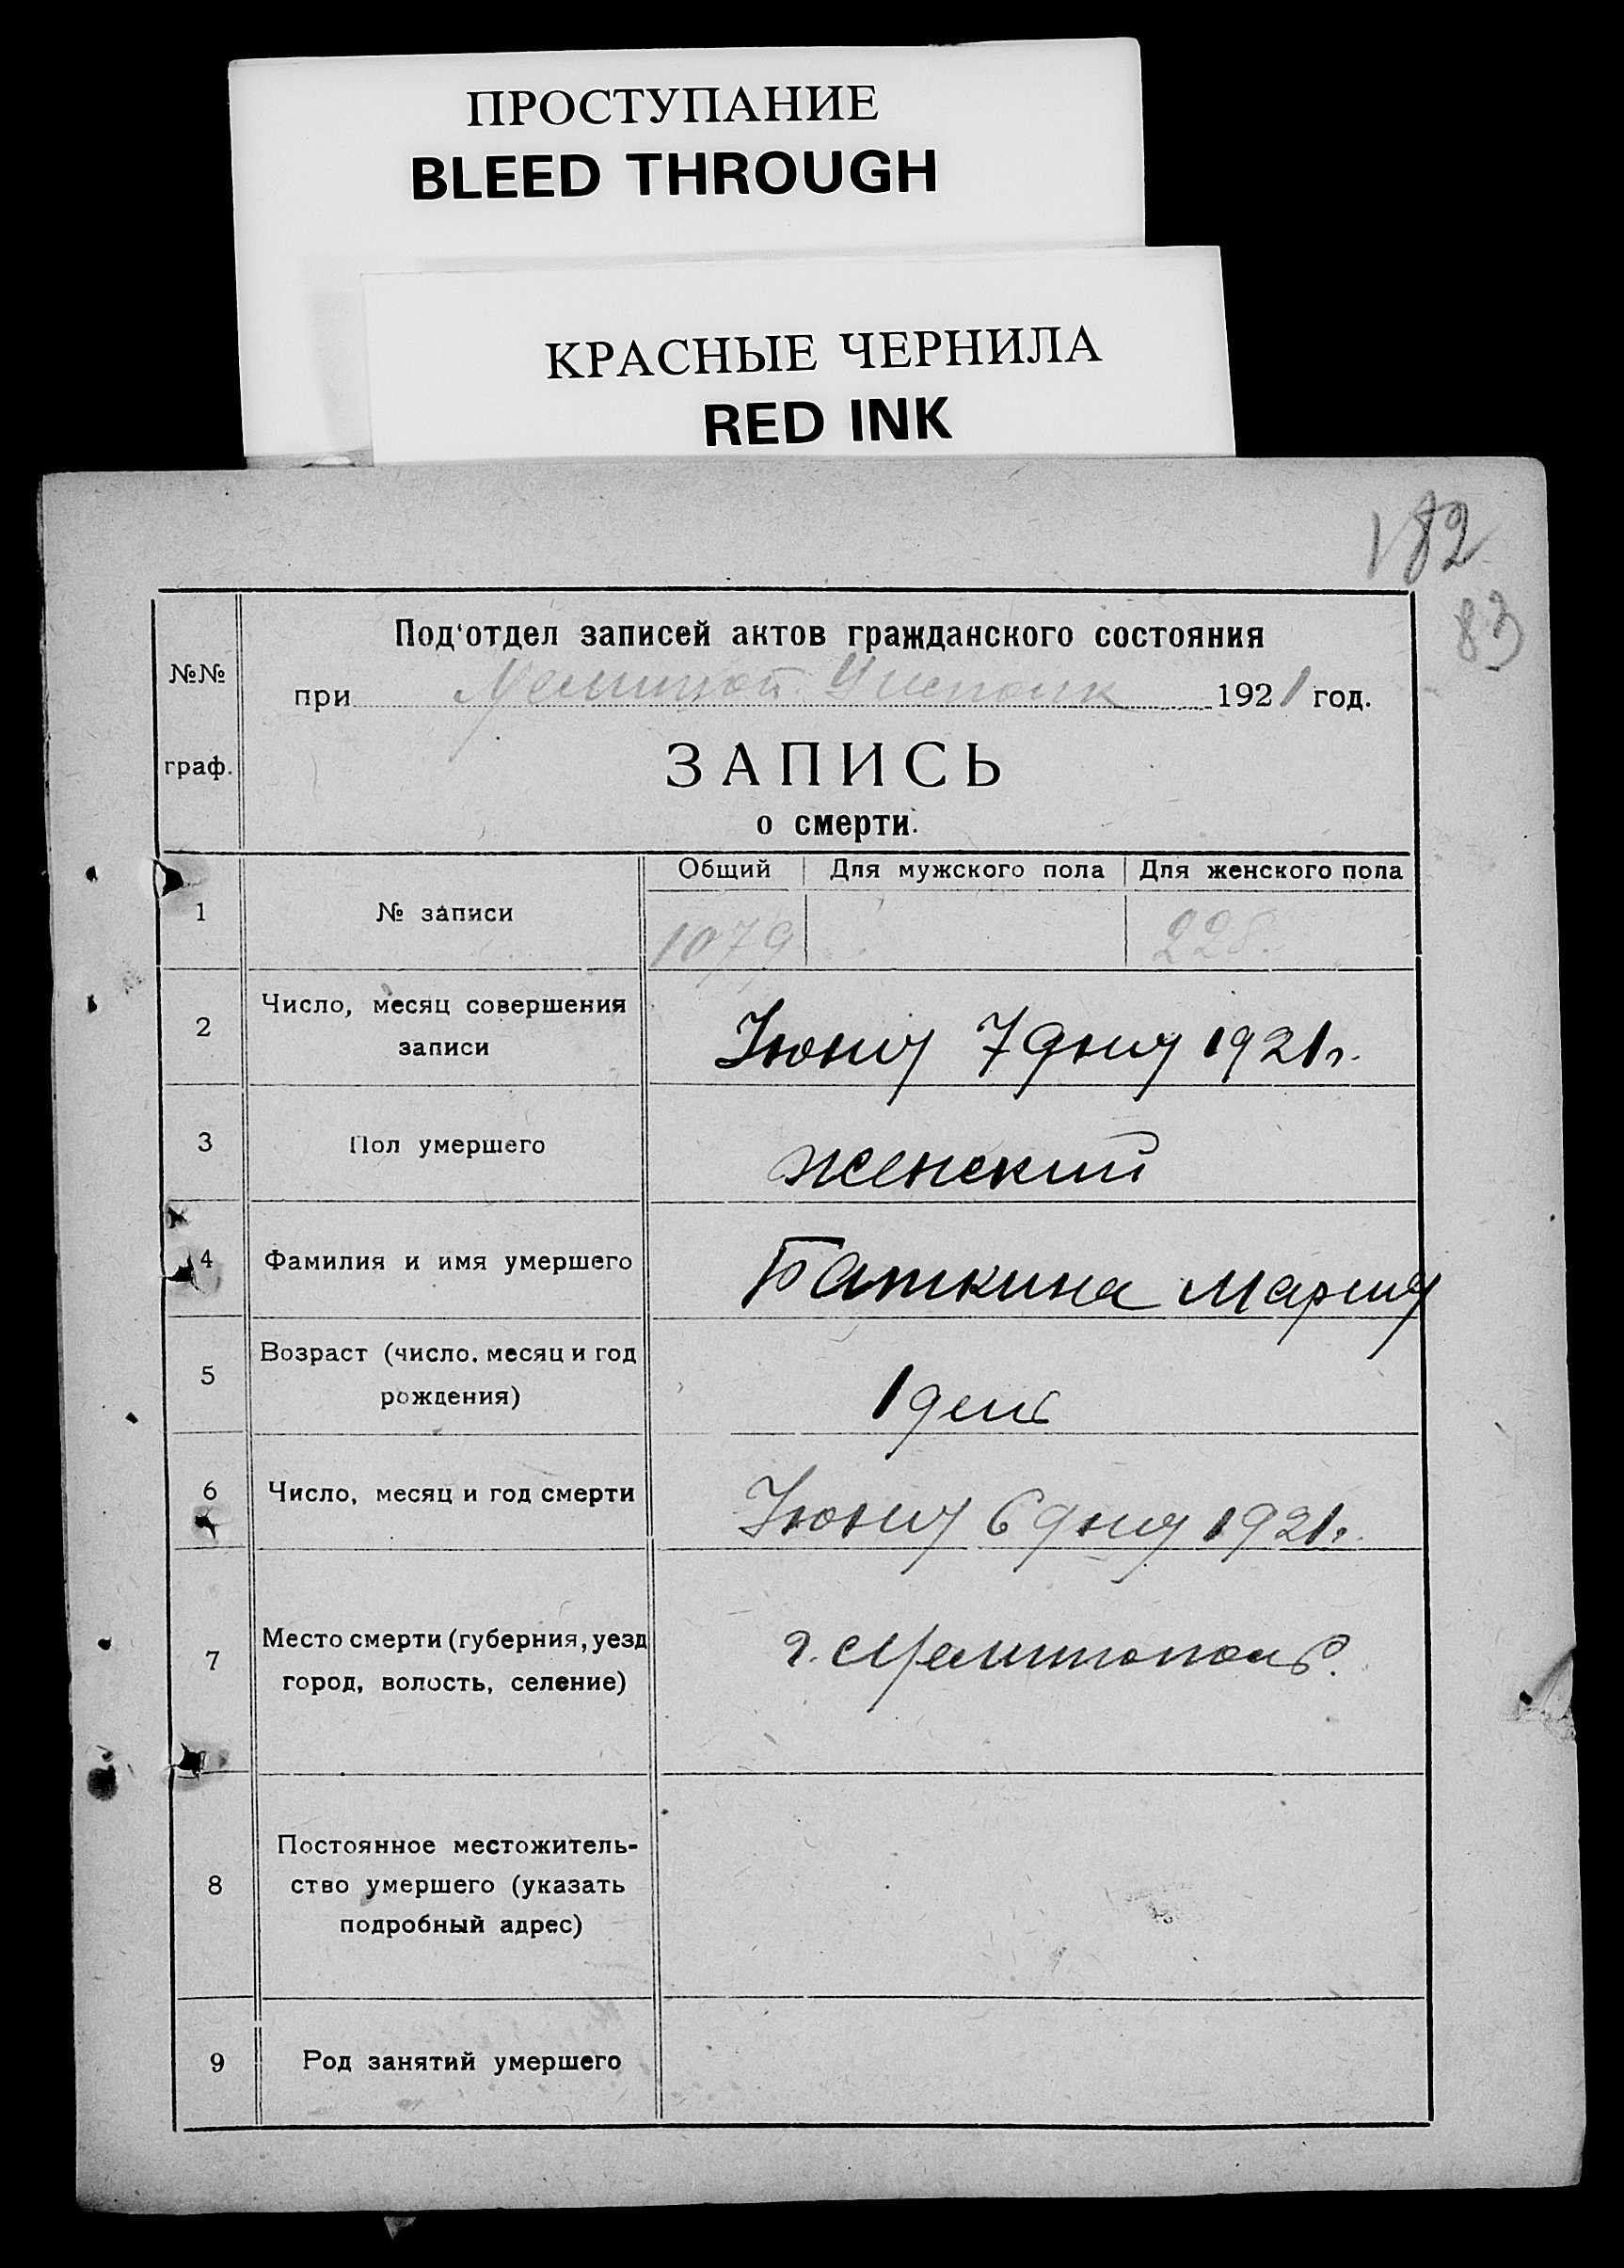 ПРОСТУПАНИЕ
BLEED THROUGH
КРАСНЫЕ ЧЕРНИЛА
RED INK
182
83
№№
граф.
Под‘отдел записей актов гражданского состояния
при 1921 год.
ЗАПИСЬ
о смерти.
Общий Для мужского пола Для женского пола
1 № записи 1079 228.
2 Число, месяц совершения
записи
Июня 7 дня 1921 г.
3 Пол умершего женский
4 Фамилия и имя умершего Баткина Мария
5 Возраст (число, месяц и год
рождения)
1 день
6 Число, месяц и год смерти Июня 6 дня 1921 г.
7 Место смерти (губерния, уезд
город, волость, селение)
г. Мелитополь.
8 Постоянное местожитель-
ство умершего (указать
подробный адрес)
9 Род занятий умершего